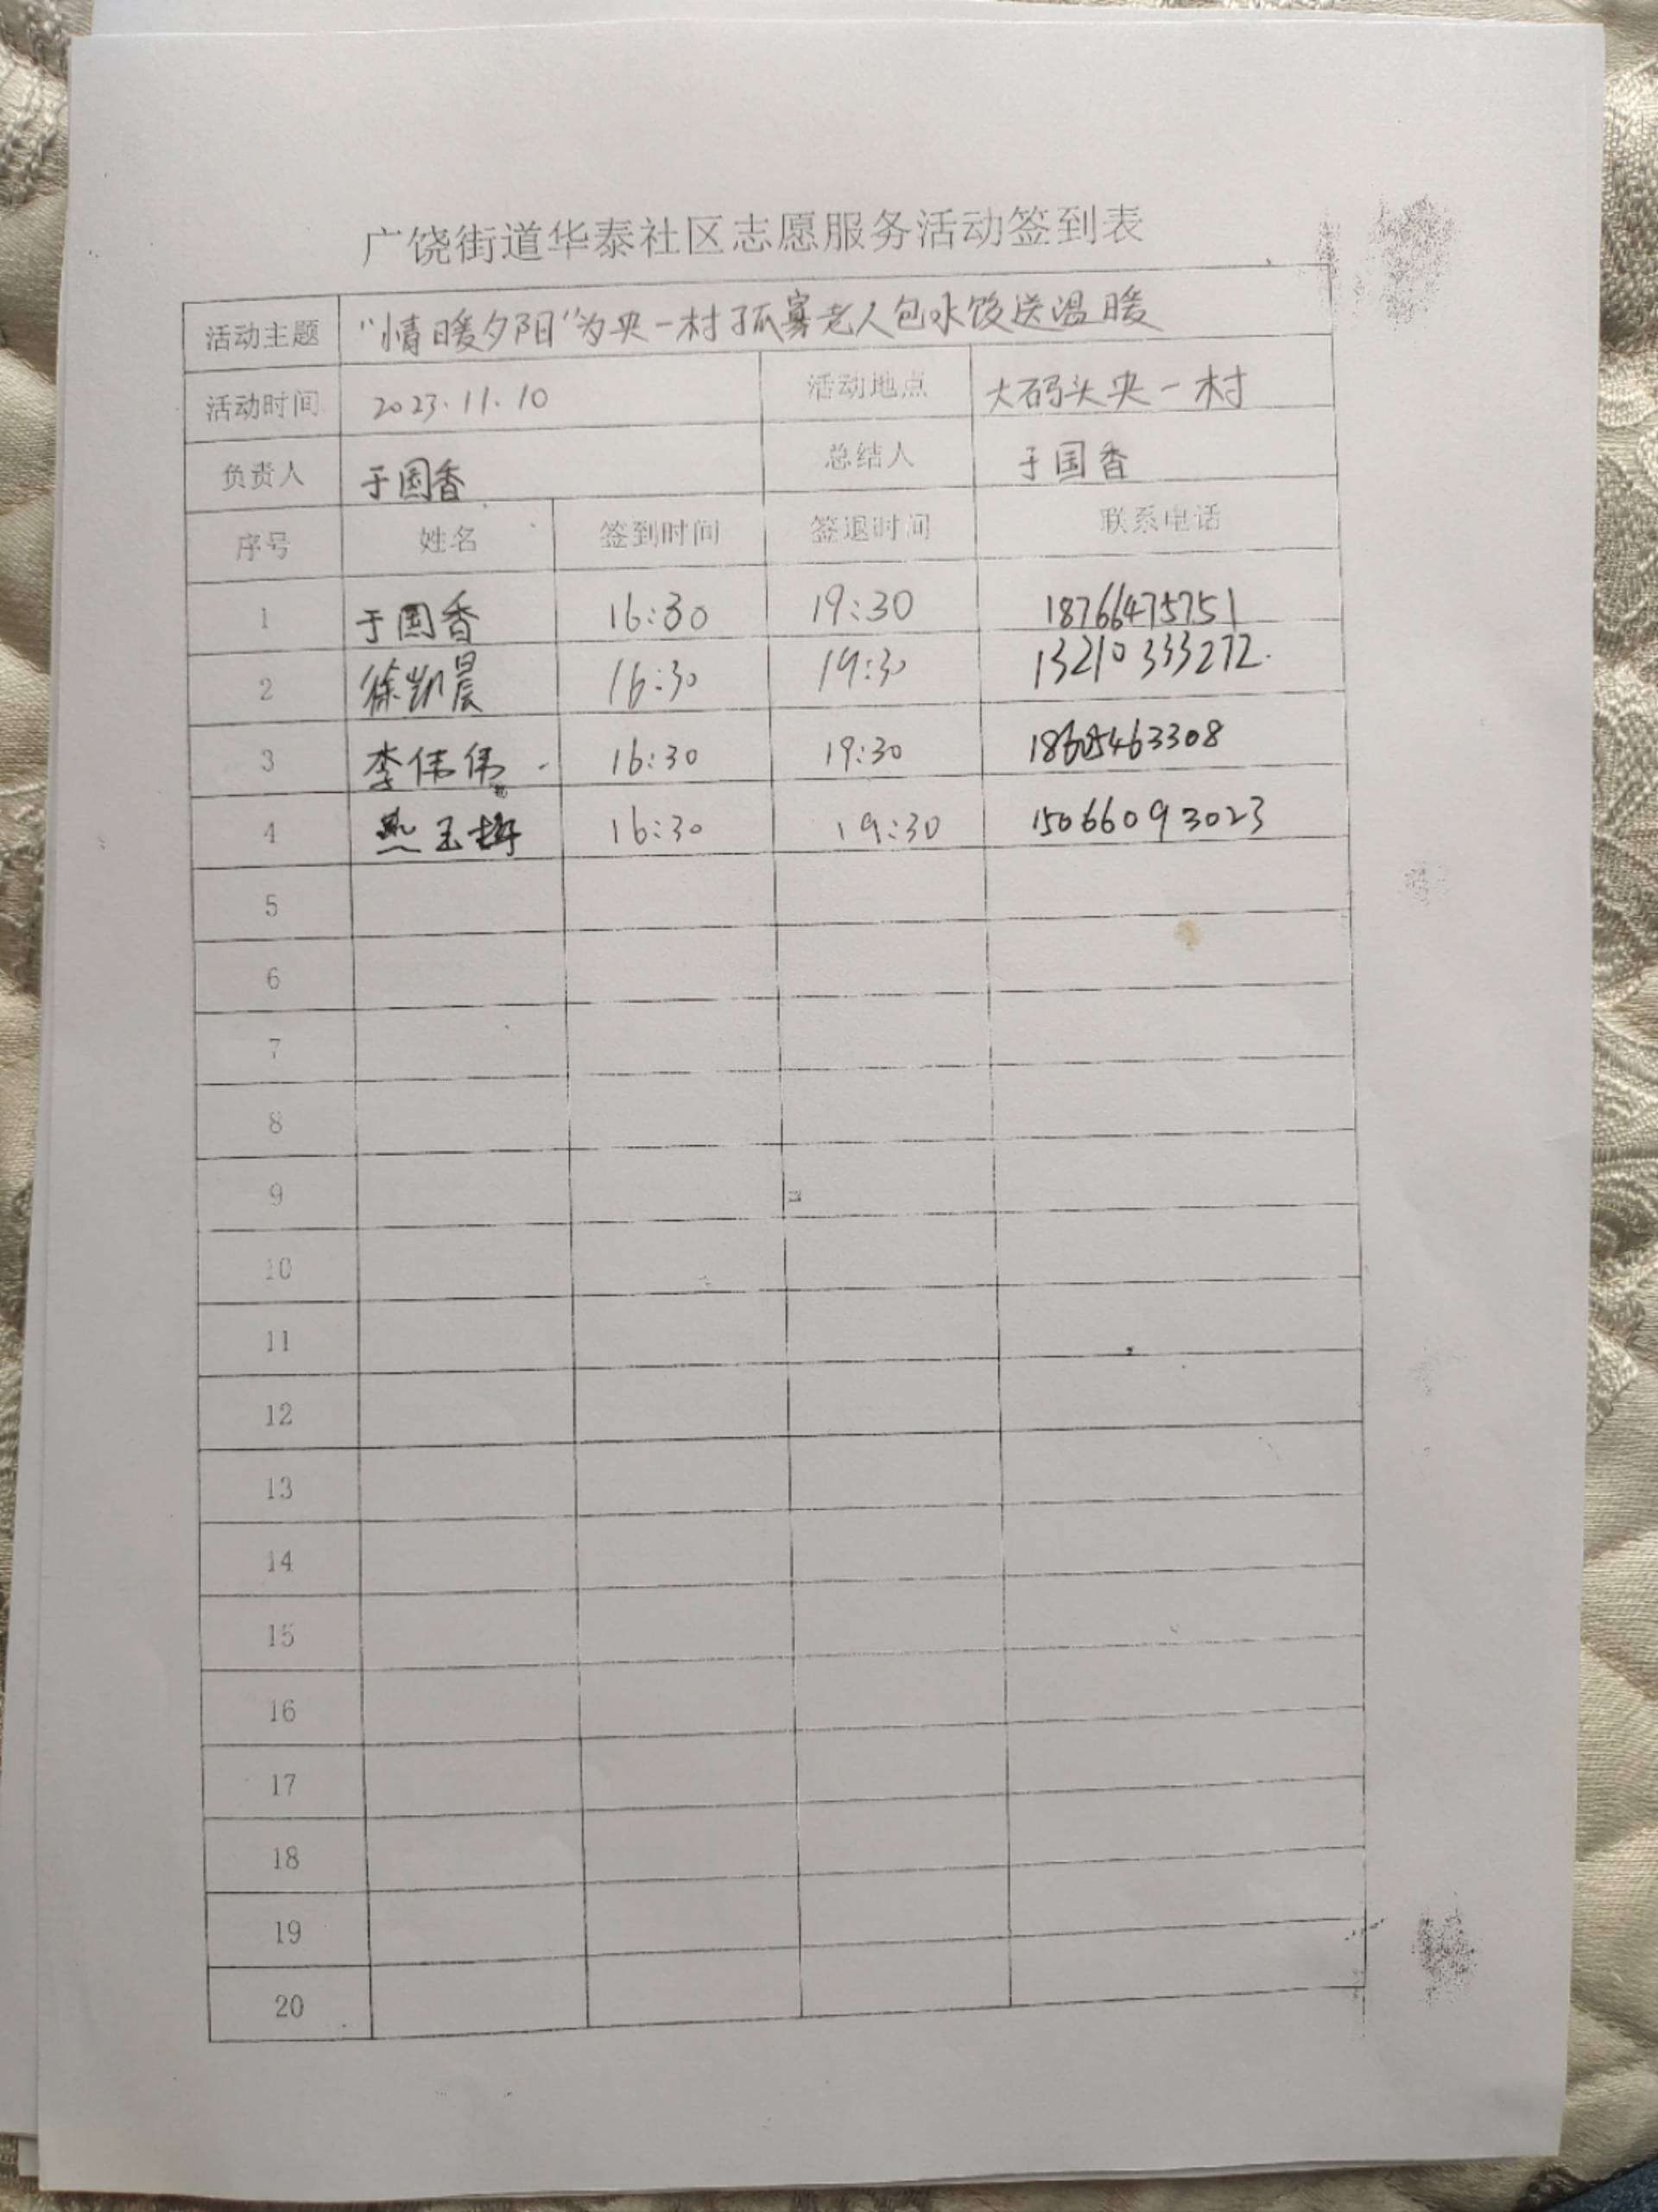 广饶街道华泰社区志愿服务活动签到表
活动主题 "情暖夕阳"为央一村孤寡老人包水饺送温暖
活动时间 2023.11.10 活动地点 大码头央一村
负责人 于国香 总结人 于国香
序号 姓名 签到时间 签退时间 联系电话
1 于国香 16:30 19:30 18766475751
2 徐凯晨 16:30 19:30 13210333272.
3 李伟伟 16:30 19:30
4 燕玉梅 16:30 19:30 15066093023
5
6
7
8
9
10
11
12
13
14
15
16
17
18
19
20